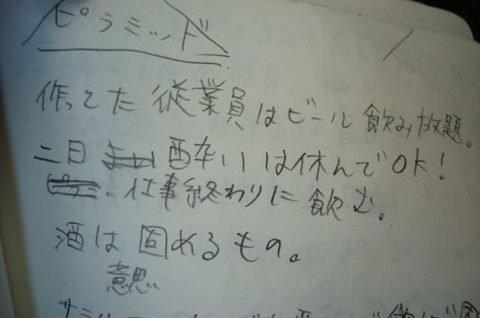 ピラミッド
作ってた従業員はビール飲み放題。
二日酔いは休んでOK!
仕事終わりに飲む。
酒は固めるもの。
意思